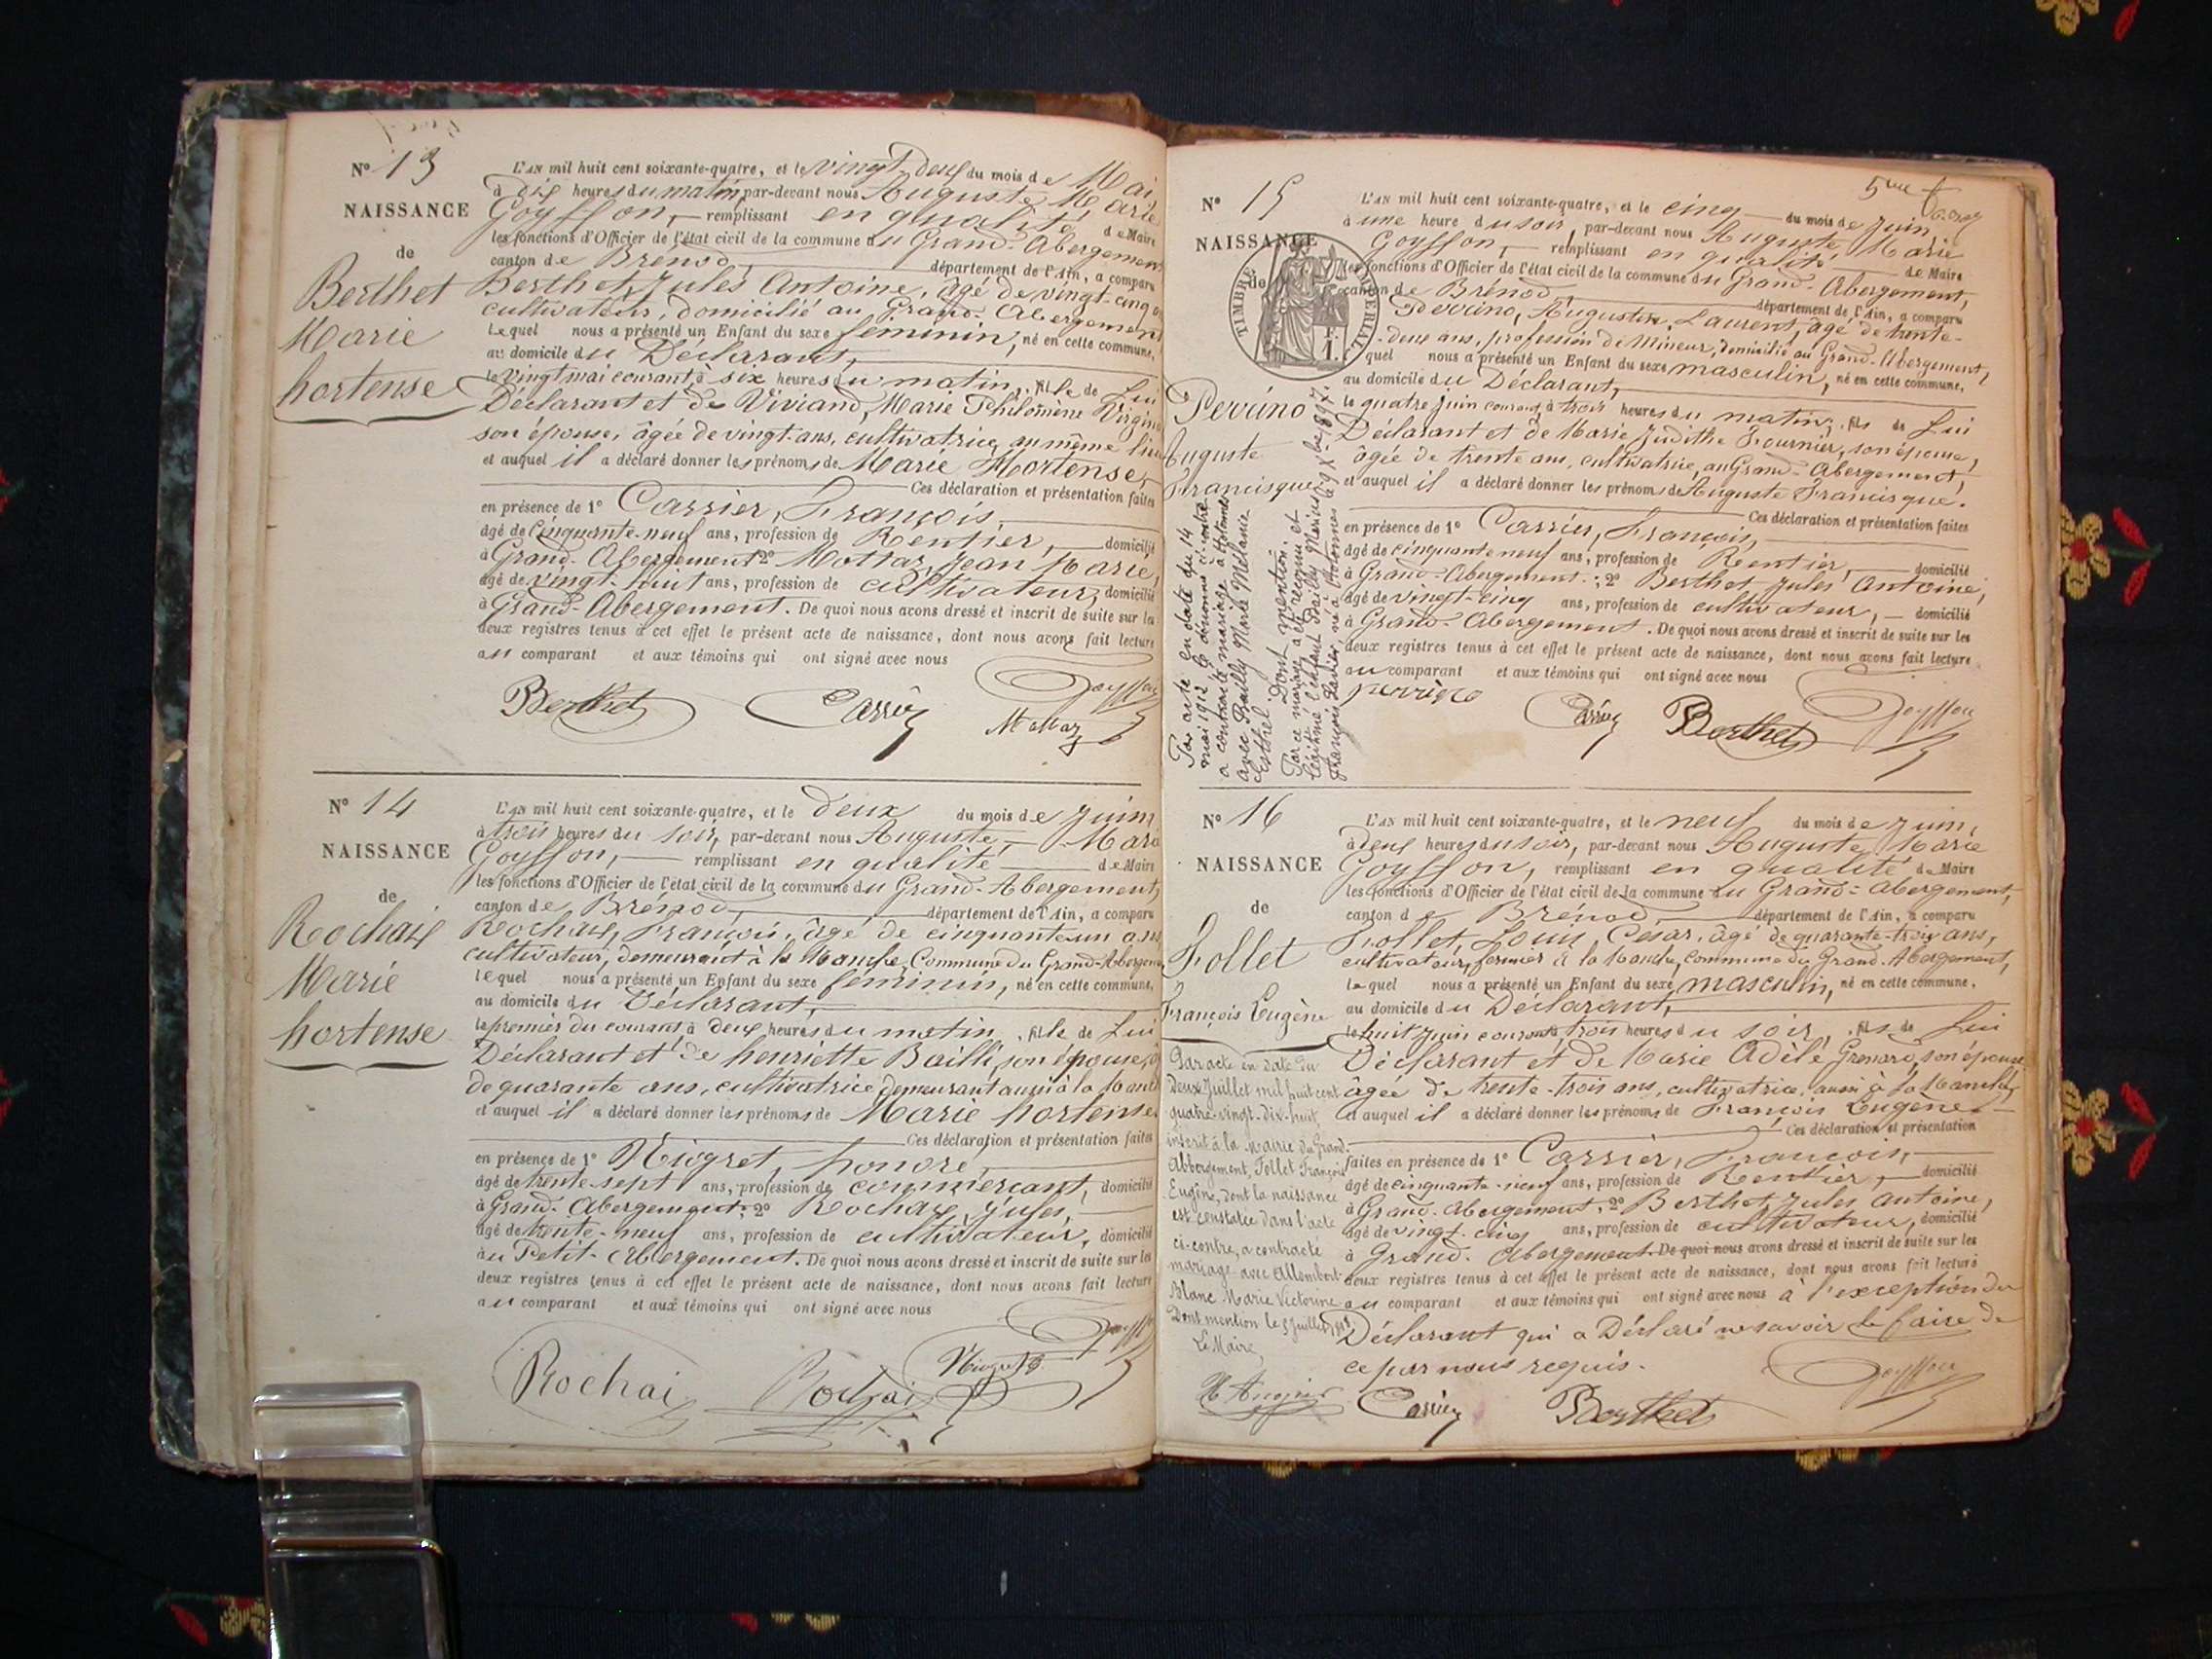 N° 13
NAISSANCE
de
Berthet
Marie
hortense
L'AN mil huit cent soixante-quatre, et le vingt-deux du mois de Mai
à dix heures du matin, par-devant nous Auguste Marie
Goyffon, remplissant en qualité de Maire
les fonctions d'Officier de l'état civil de la commune du Grand-Abergement
canton de Brénod, département de l'Ain, a comparu
Berthet, Jules Antoine, âgé de vingt-cinq
cultivateur, domicilié au Grand-Abergement
Lequel nous a présenté un Enfant du sexe féminin, né en cette commune,
au domicile du Déclarant,
le vingt mai courant, à six heures du matin, fille de Lui
Déclarant et de Viviand, Marie Philomène Virginie
son épouse, âgée de vingt-ans, cultivatrice, au même lieu
et auquel il a déclaré donner les prénoms de Marie Hortense,
Ces déclaration et présentation faites
en présence de 1° Carrier, François,
âgé de cinquante-neuf ans, profession de Rentier, domicilié
à Grand-Abergement 2° Mottaz, Jean Marie,
âgé de vingt-huit ans, profession de cultivateur, domicilié
à Grand-Abergement. De quoi nous avons dressé et inscrit de suite sur les
deux registres tenus à cet effet le présent acte de naissance, dont nous avons fait lecture
au comparant et aux témoins qui ont signé avec nous
Goyffon
Berthet Carrier Mottaz
N° 14
NAISSANCE
de
Rochaix
Marie
hortense
L'AN mil huit cent soixante-quatre, et le deux du mois de Juin
à trois heures du soir, par-devant nous Auguste, Marie
Goyffon, remplissant en qualité de Maire
les fonctions d'Officier de l'état civil de la commune du Grand-Abergement,
canton de Brénod, département de l'Ain, a comparu
Rochaix, François, âgé de cinquante-un ans,
cultivateur, demeurant à la Manche, Commune du Grand-Abergement
lequel nous a présenté un Enfant du sexe féminin, né en cette commune,
au domicile du Déclarant,
le premier du courant à deux heures du matin, fille de Lui
Déclarant et de henriette Bailli, son épouse,
de quarante ans, cultivatrice, demeurant aussi à la Manche
et auquel il a déclaré donner les prénoms de Marie hortense.
Ces déclaration et présentation faites
en présence de 1° Niogret, honoré,
âgé de trente-sept ans, profession de commerçant, domicilié
à Grand-Abergement; 2° Rochaix, Jules,
âgé de trente-neuf ans, profession de cultivateur, domicilié
au Petit-Abergement. De quoi nous avons dressé et inscrit de suite sur les
deux registres tenus à cet effet le présent acte de naissance, dont nous avons fait lecture
au comparant et aux témoins qui ont signé avec nous
Goyffon
Rochai Rochai Niogret
5me f
N° 15
NAISSANCE
de
TIMBRE IMPERIAL
Pevrino
Auguste
Francisque
Par acte en date du 14
mai 1912 le dénommé ci-contre
a contracté mariage à Hotonnes
avec Bailly Marie Mélanie
Esther. Dont mention.
Par ce mariage a été reconnu et
légitimé l'enfant Bailly Marius
François Xavier, né à Hotonnes le 9 Xbre 1897.
L'AN mil huit cent soixante-quatre, et le cinq du mois de Juin,
à une heure du soir, par-devant nous Auguste Marie
Goyffon, remplissant en qualité de Maire
les fonctions d'Officier de l'état civil de la commune du Grand-Abergement,
canton de Brénod, département de l'Ain, a comparu
Pevrino, Augustin, Laurent, âgé de trente-
deux ans, profession de Mineur, domicilié au Grand-Abergement,
quel nous a présenté un Enfant du sexe masculin, né en cette commune,
au domicile du Déclarant,
le quatre juin courant, à trois heures du matin, fils de Lui
Déclarant et de Marie Judithe Fournier, son épouse,
âgée de trente ans, cultivatrice, au Grand-Abergement,
et auquel il a déclaré donner les prénoms de Auguste Francisque.
Ces déclaration et présentation faites
en présence de 1° Carrier, François,
âgé de cinquante neuf ans, profession de Rentier, domicilié
à Grand-Abergement; 2° Berthet Jules Antoine,
âgé de vingt-cinq ans, profession de cultivateur, domicilié
à Grand-Abergement. De quoi nous avons dressé et inscrit de suite sur les
deux registres tenus à cet effet le présent acte de naissance, dont nous avons fait lecture
au comparant et aux témoins qui ont signé avec nous
Carrier Berthet Goyffon
N° 16
NAISSANCE
de
Follet
François Eugène
Par acte en date du
deux Juillet mil huit cent
quatre-vingt-dix-huit,
inscrit à la Mairie du Grand-
Abbergement, Follet François
Eugène, dont la naissance
est constatée dans l'acte
ci-contre, a contracté
mariage avec Allombert-
Blanc Marie Victorine
Dont mention le 5 Juillet 1898
Le Maire
L'AN mil huit cent soixante-quatre, et le neuf du mois de Juin,
à deux heures du soir, par-devant nous Auguste Marie
Goyffon, remplissant en qualité de Maire
les fonctions d'Officier de l'état civil de la commune du Grand-Abergement,
canton de Brénod, département de l'Ain, a comparu
Follet, Louis César, âgé de quarante-trois ans,
cultivateur, fermier à la Manche, commune du Grand-Abergement,
Lequel nous a présenté un Enfant du sexe masculin, né en cette commune,
au domicile du Déclarant,
le huit Juin courant à trois heures du soir, fils de Lui
Déclarant et de Marie Adèle Grenard, son épouse
âgée de trente-trois ans, cultivatrice, aussi à la Manche,
et auquel il a déclaré donner les prénoms de François Eugène
Ces déclaration et présentation
faites en présence de 1° Carrier, François,
âgé de cinquante-neuf ans, profession de Rentier, domicilié
à Grand-Abergement; 2° Berthet, Jules Antoine,
âgé de vingt-cinq ans, profession de cultivateur, domicilié
à Grand-Abergement. De quoi nous avons dressé et inscrit de suite sur les
deux registres tenus à cet effet le présent acte de naissance, dont nous avons fait lecture
au comparant et aux témoins qui ont signé avec nous à l'exception du
Déclarant qui a Déclaré ne savoir le faire de
ce par nous requis.
Carrier Berthet Goyffon